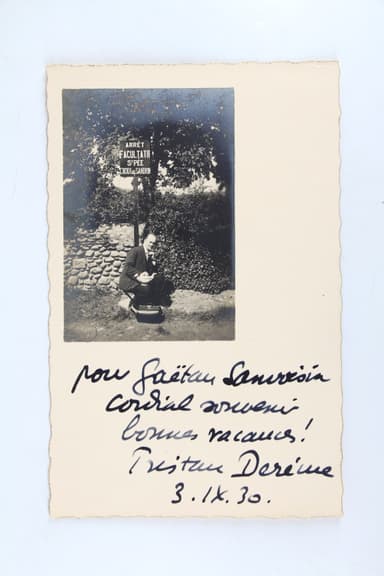 ARRÊT
FACULTATIF
ST PÉE
pour Gaëtan Sanvoisin
cordial souvenir
bonnes vacances!
Tristan Derème
3.IX.30.